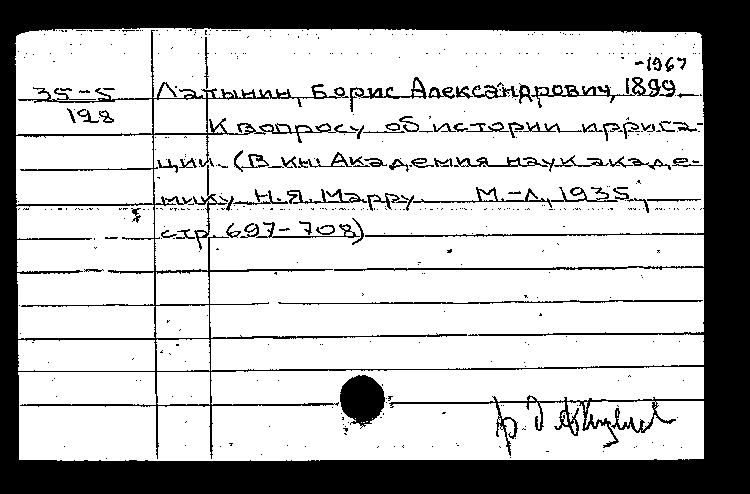 -1967
35-5 Латынин, Борис Александрович, 1899
128
К вопросу об истории иррига-
ции. (В кн: Академия наук акаде-
мику Н.Я. Марру. М.-Л., 1935,
стр. 697-708)